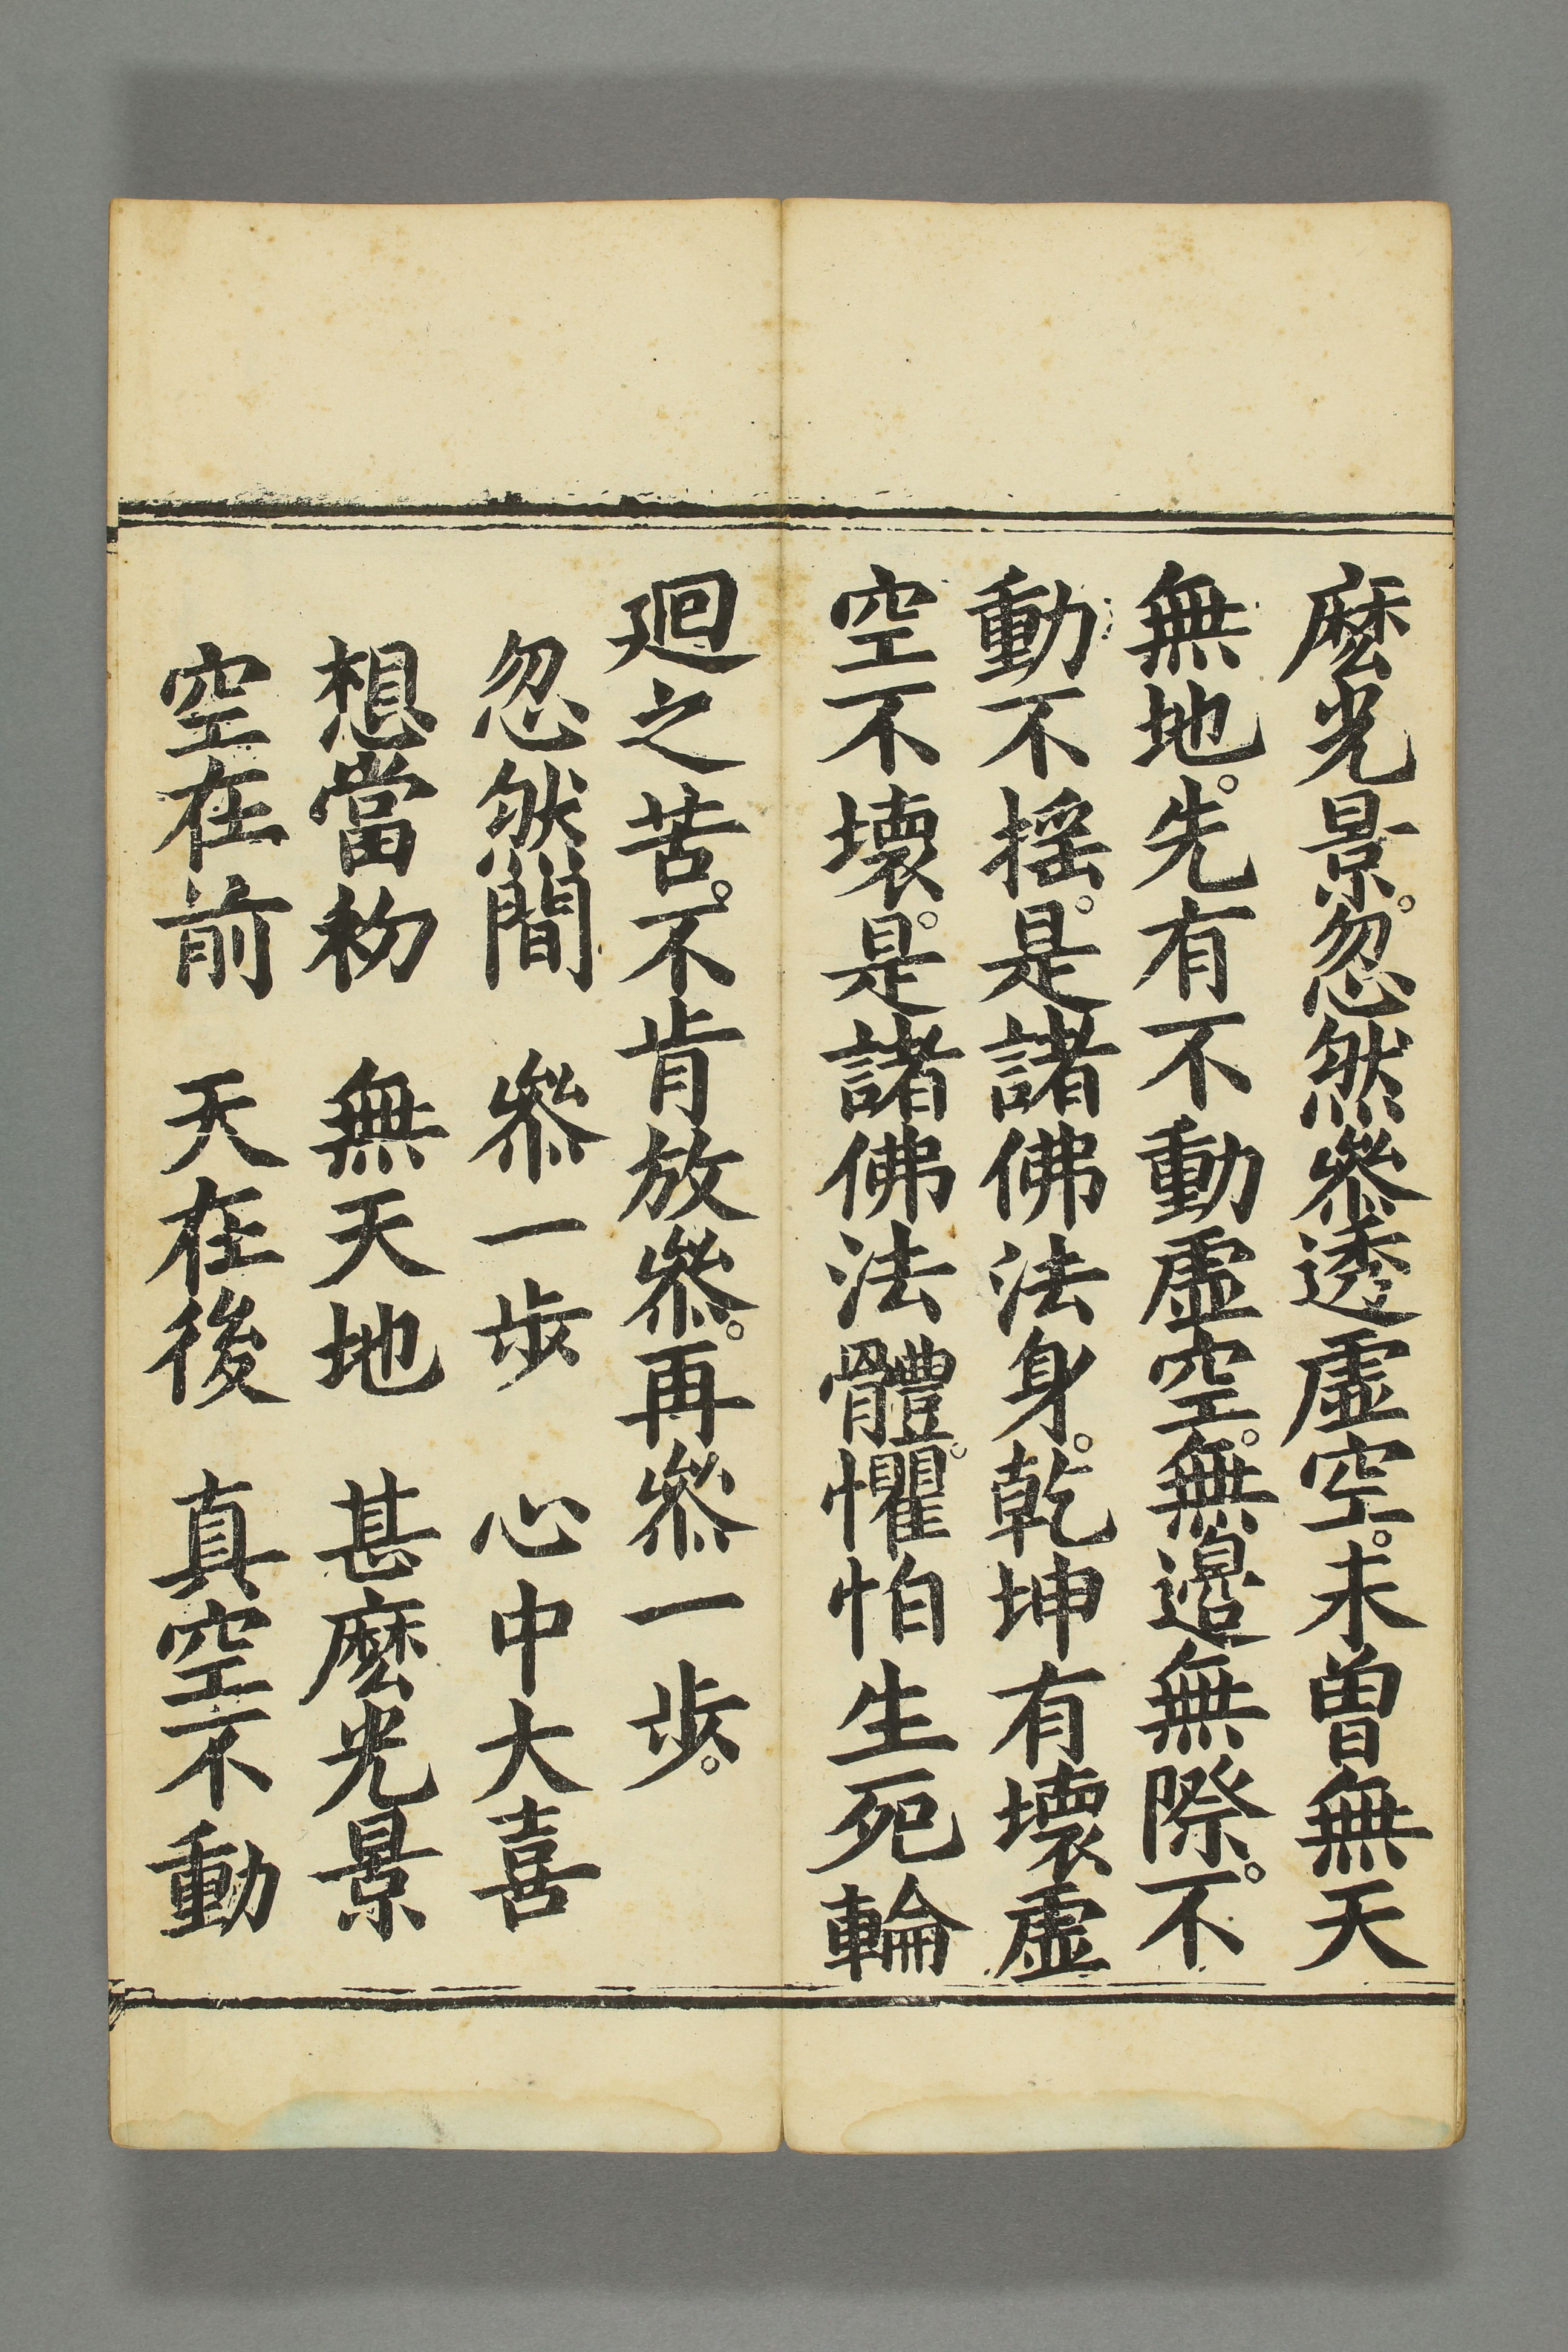 麽光景。忽然叅透虛空。未曾無天
無地。先有不動虛空。無邉無際。不
動不搖。是諸佛法身。乾坤有壞虛
空不壞。是諸佛法體。懼怕生死輪
廻之苦。不肯放叅。再叅一步。
忽然間　叅一步　心中大喜
想當初　無天地　甚麽光景
空在前　天在後　真空不動